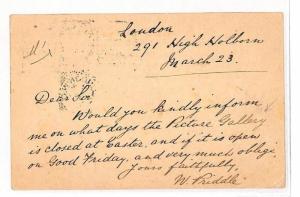 London
291 High Holborn
March 23.
Dear Sir,
Would you kindly inform
me on what days the Picture Gallery
is closed at Easter, and if it is open
on Good Friday, and very much oblige
Yours faithfully,
W. Priddle